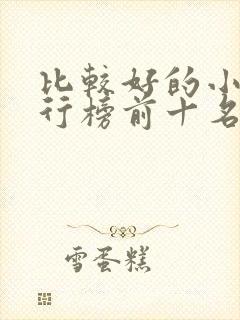 比较好的小
行榜前十名
雪蛋糕